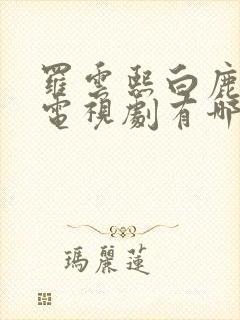 羅雲熙白鹿
電視劇有哪
瑪麗蓮